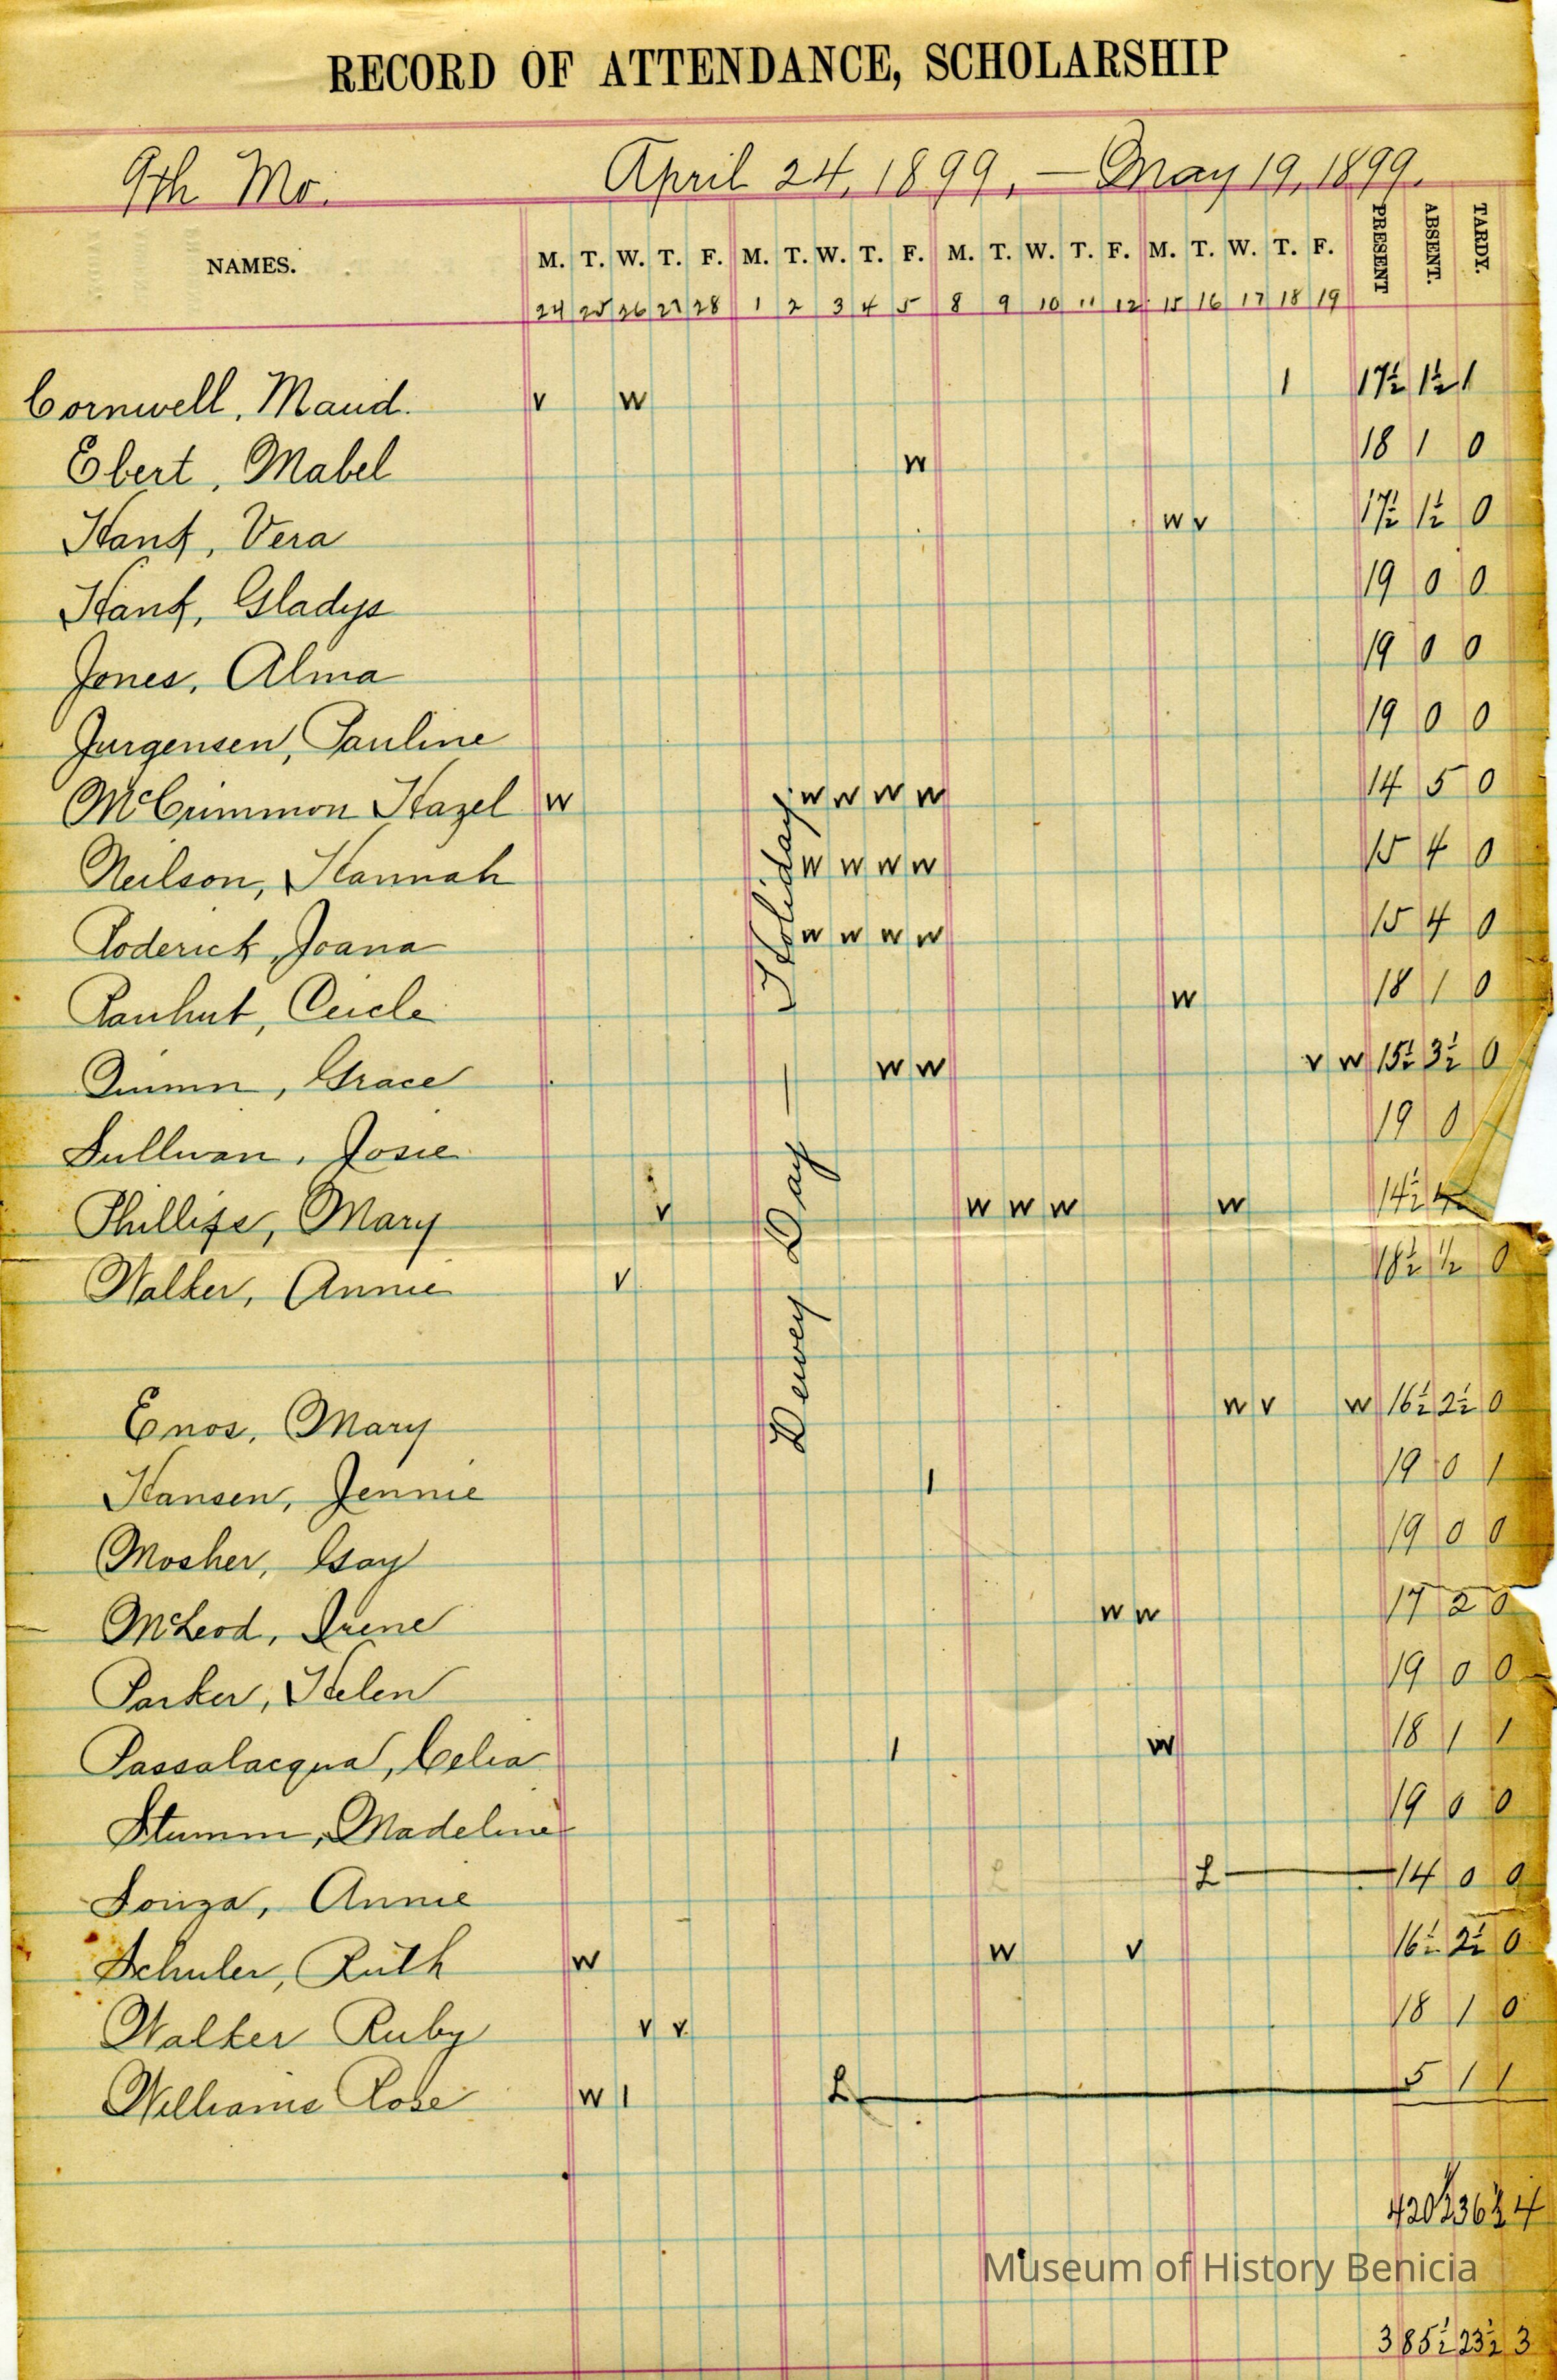 RECORD OF ATTENDANCE, SCHOLARSHIP
9th Mo. April 24, 1899, — May 19, 1899.
NAMES. M. T. W. T. F. M. T. W. T. F. M. T. W. T. F. M. T. W. T. F. PRESENT ABSENT. TARDY.
24 25 26 27 28 1 2 3 4 5 8 9 10 11 12 15 16 17 18 19
Cornwell, Maud. v w 1 17½ 1½ 1
Ebert, Mabel w 18 1 0
Hank, Vera w v 17½ 1½ 0
Hank, Gladys 19 0 0
Jones, Alma 19 0 0
Jurgensen, Pauline 19 0 0
McCrimmon Hazel w w w w w 14 5 0
Neilson, Hannah w w w w 15 4 0
Roderick, Joana w w w w 15 4 0
Rauhut, Ceicle w 18 1 0
Quinn, Grace w w v w 15½ 3½ 0
Sullivan, Josie 19 0
Phillips, Mary v w w w w 14½ 4
Walker, Annie v 18½ ½ 0
Dewey Day — Holiday.
Enos, Mary w v w 16½ 2½ 0
Hansen, Jennie 1 19 0 1
Mosher, Gay 19 0 0
McLeod, Irene w w 17 2 0
Parker, Helen 19 0 0
Passalacqua, Celia 1 w 18 1 1
Stumm, Madeline 19 0 0
Souza, Annie L L 14 0 0
Schuler, Ruth w w v 16½ 2½ 0
Walker Ruby v v 18 1 0
Williams Rose w 1 L 5 1 1
420½ 36½ 4
Museum of History Benicia
385½ 23½ 3